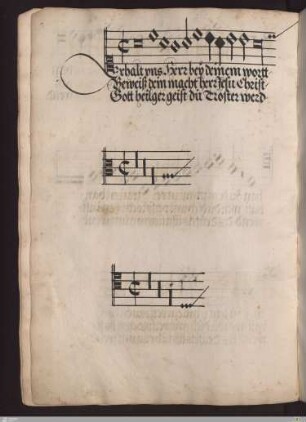 Erhalt vns Herr bey deinem wortt
Beweiß dein macht herr Jesu Christ
Gott heiliger geist du Troster werd